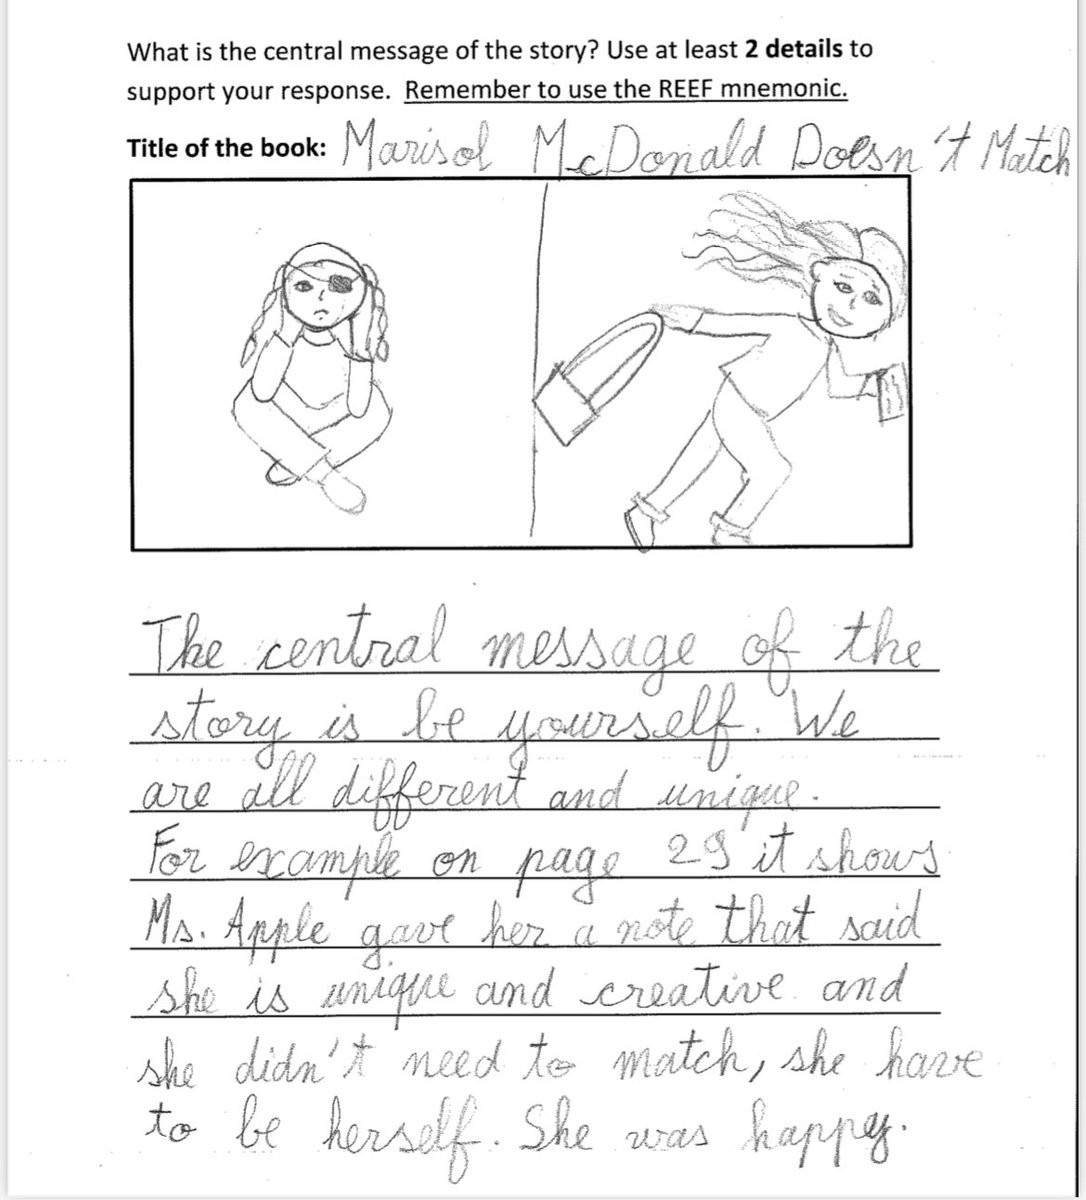 What is the central message of the story? Use at least 2 details to
support your response. Remember to use the REEF mnemonic.
Title of the book: Marisol McDonald Doesn't Match
The central message of the
story is be yourself. We
are all different and unique.
For example on page 29 it shows
Ms. Apple gave her a note that said
she is unique and creative and
she didn't need to match, she have
to be herself. She was happy.